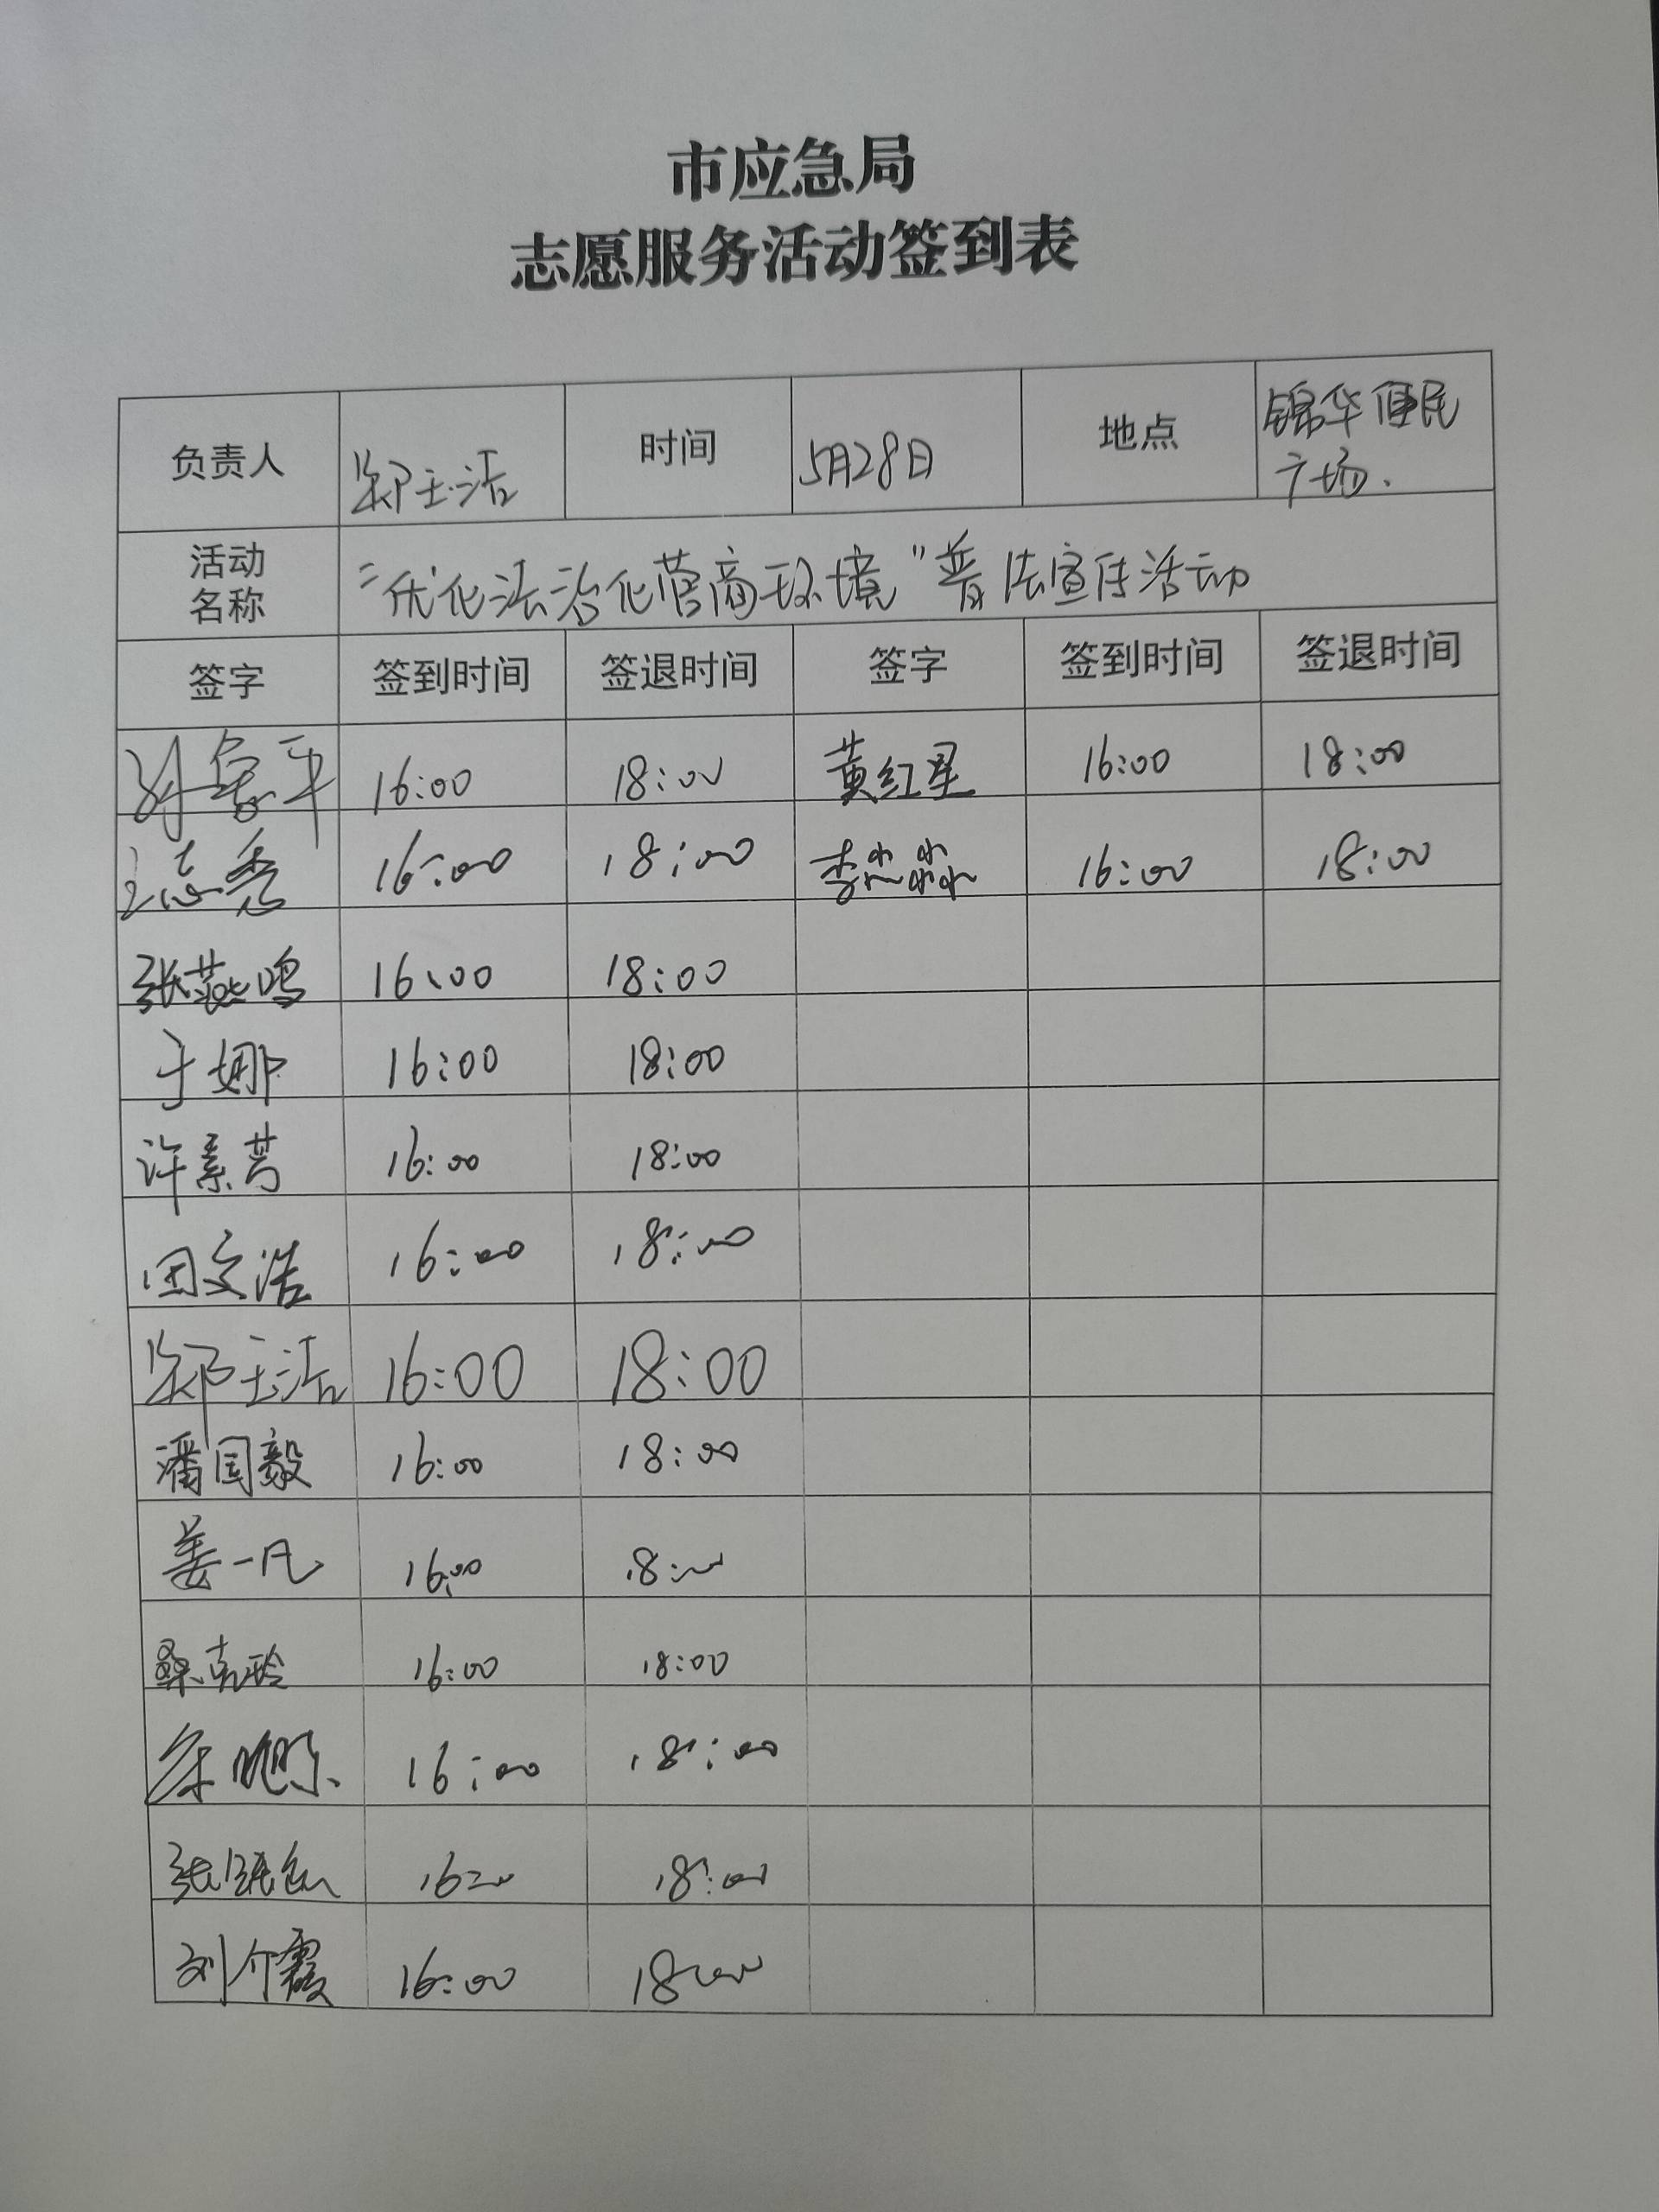 市应急局
志愿服务活动签到表
负责人 郑玉洁 时间 5月28日 地点 锦华便民
广场.
活动
名称
"优化法治化营商环境"普法宣传活动
签字 签到时间 签退时间 签字 签到时间 签退时间
16:00 18:00 黄红星 16:00 18:00
志秀 16:00 18:00 李淼淼 16:00 18:00
张燕鸣 16:00 18:00
于娜 16:00 18:00
许素芳 16:00 18:00
田文浩 16:00 18:00
郑玉洁 16:00 18:00
潘国毅 16:00 18:00
姜一凡 16:00 18:00
桑克玲 16:00 18:00
16:00 18:00
张 16:00 18:00
刘介霞 16:00 18:00